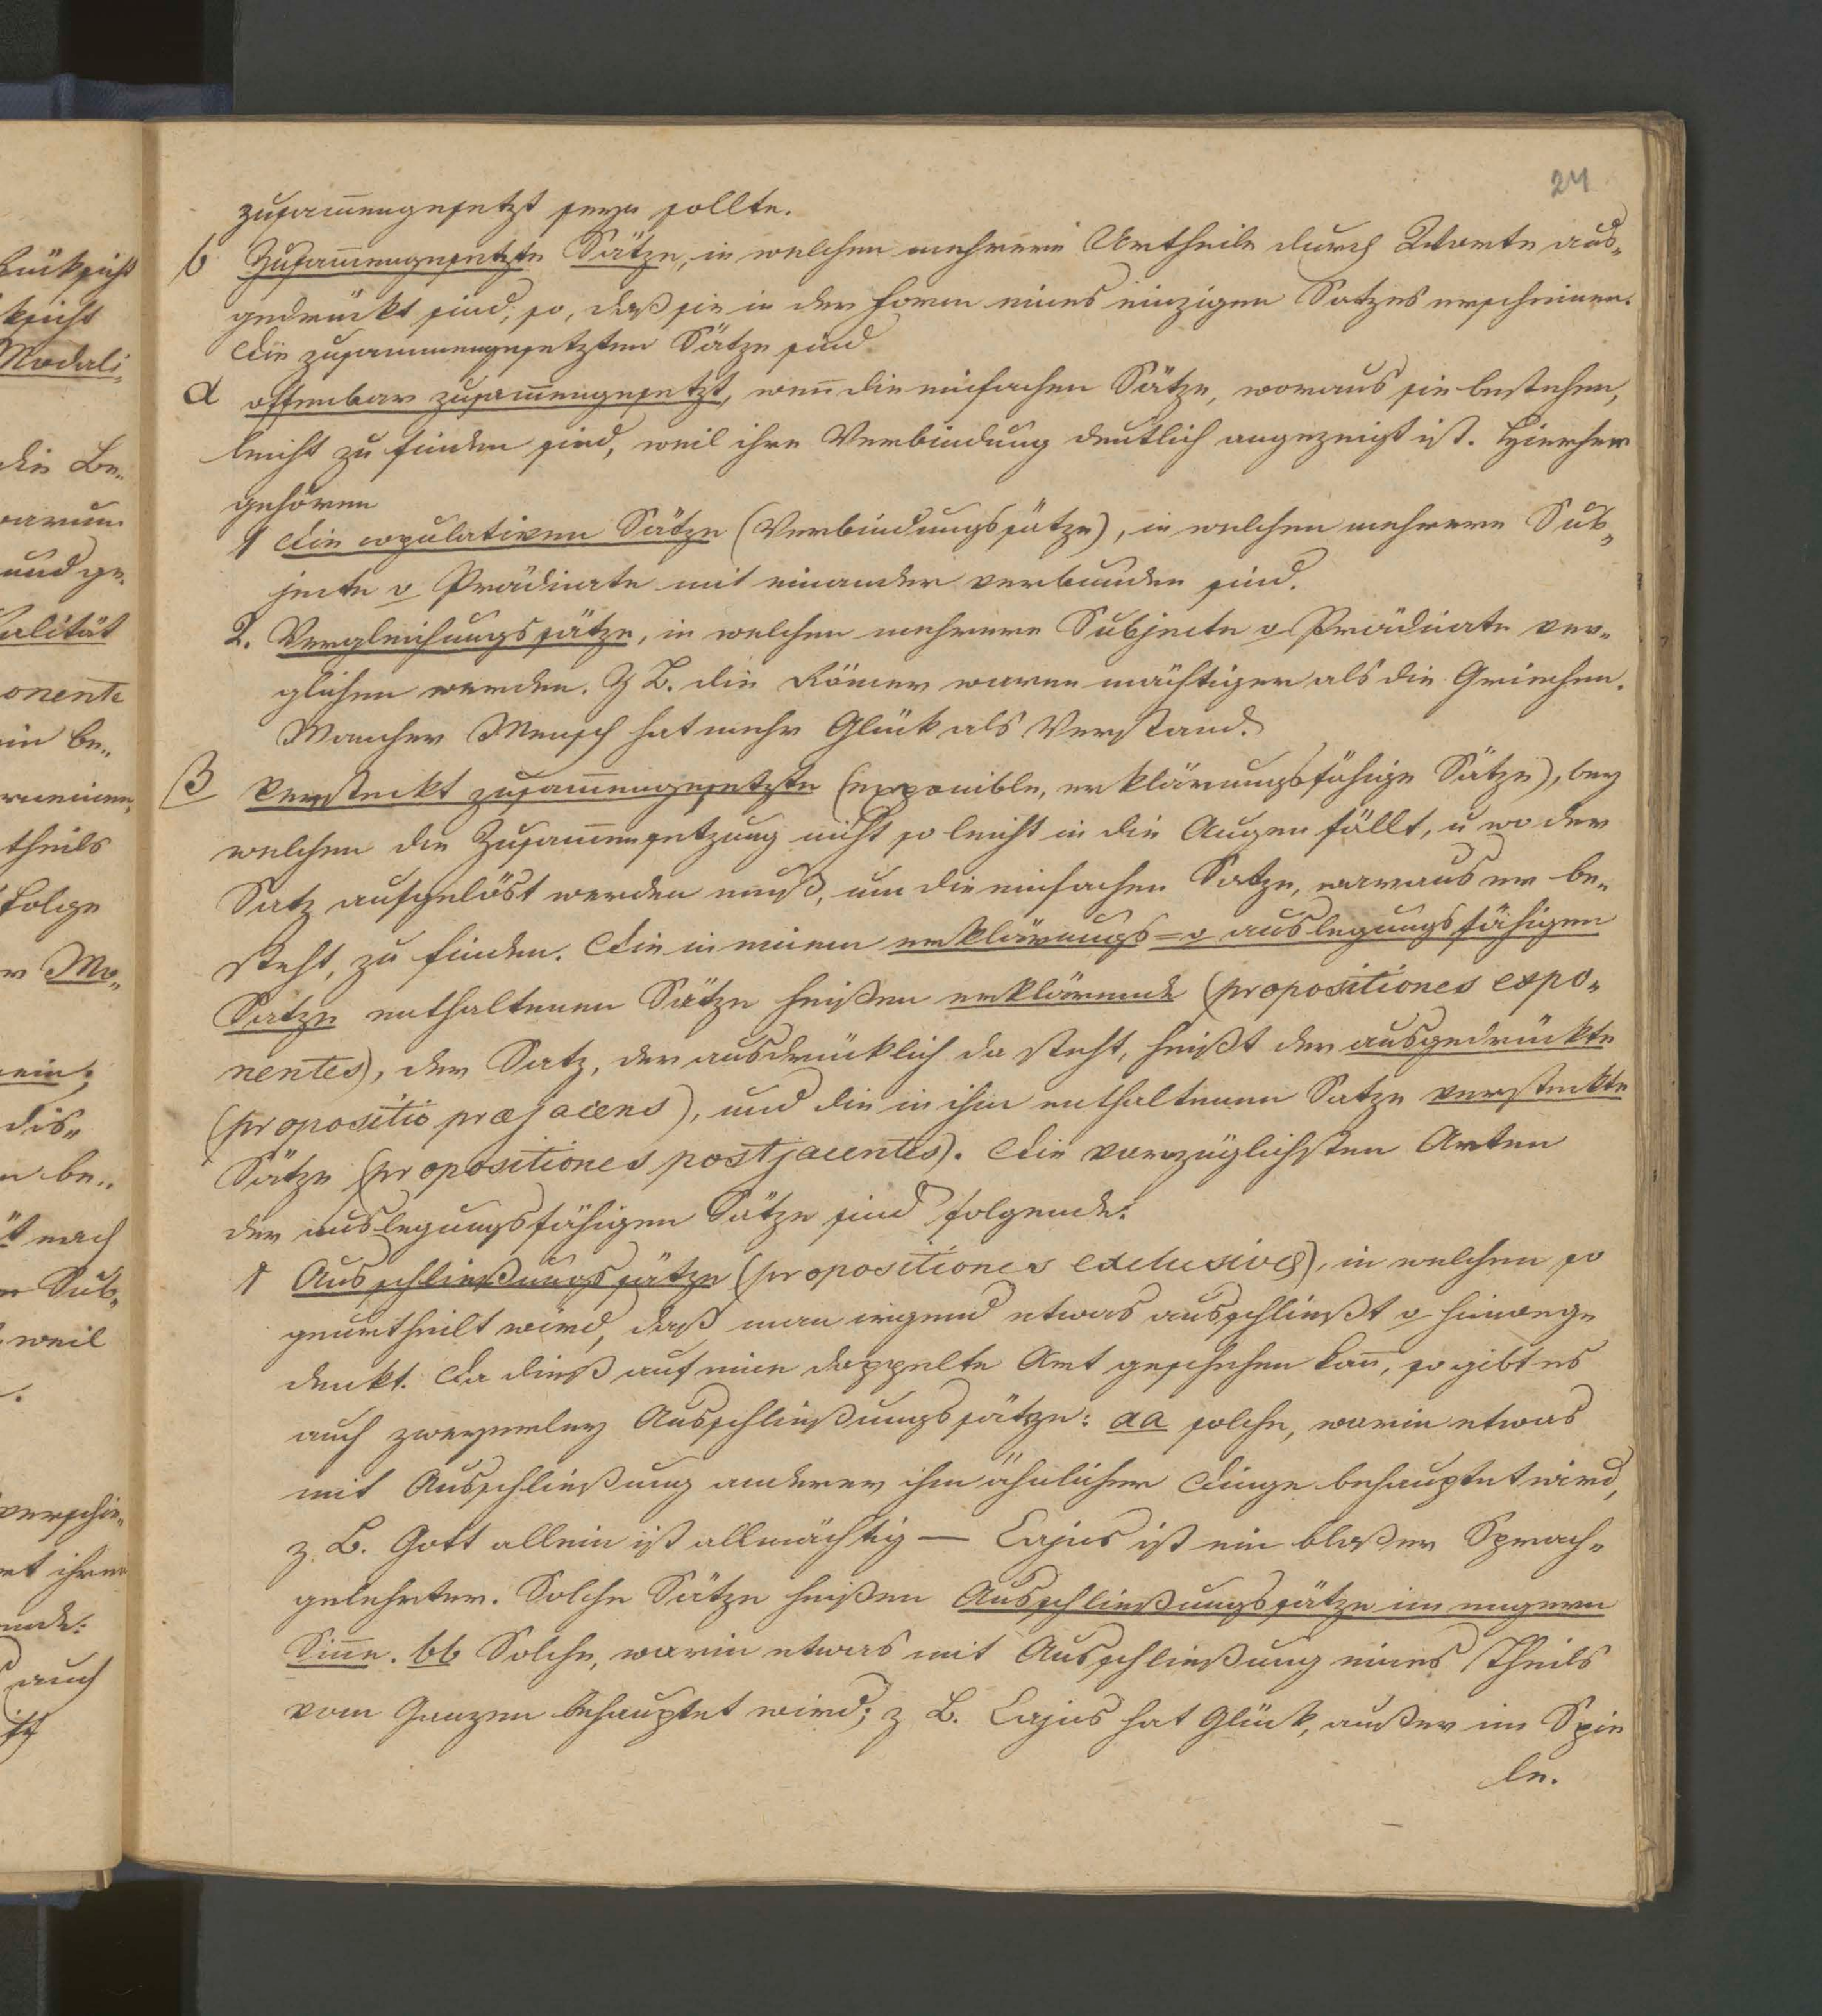 24
zusam̄engesetzt seyn sollte.
b Zusam̄engesetzte Sätze, in welchen mehrere Urtheile durch Worte aus-
gedrückt sind, so, daß sie in der Form eines einzigen Satzes erscheinen.
Die zusammengesetzten Sätze sind
α offenbar zusam̄engesetzt, wen̄ die einfachen Sätze, woraus sie bestehen,
leicht zu finden sind, weil ihre Verbindung deutlich angezeigt ist. Hierher
gehören
1 Die copulativen Sätze (Verbindungssätze), in welchen mehrere Sub-
jecte o Prädicate mit einander verbunden sind.
2. Vergleichungssätze, in welchen mehrere Subjecte o Prädicate ver-
glichen werden. Z B. die Römer waren mächtiger als die Griechen.
Mancher Mensch hat mehr Glück als Verstand.
β Versteckt zusam̄engesetzte (exponible, erklärungsfähige Sätze), bey
welchen die Zusam̄ensetzung nicht so leicht in die Augen fällt, u wo der
Satz aufgelöst werden muß, um die einfachen Satze, woraus er be-
steht, zu finden. Die in einem erklärungs= o auslegungsfähigen
Satze enthaltenen Sätze heißen erklärende (propositiones expo-
nentes), der Satz, der ausdrücklich da steht, heißt der ausgedrückte
(propositio præjacens), und die in ihm enthaltenen Satze versteckte
Sätze (propositiones postjacentes). Die vorzüglichsten Arten
der auslegungsfähigen Sätze sind folgende:
1 Ausschließungssätze (propositiones exclusivæ), in welchen so
geurtheilt wird, daß man irgend etwas ausschließt o hinweg-
denkt. Da dieß auf eine doppelte Art geschehen kan̄, so gibt es
auch zweyerley Ausschließungssätze: aa solche, worin etwas
mit Ausschließung anderer ihm ähnlicher Dinge behauptet wird,
z. B. Gott allein ist allmächtig — Cajus ist ein bloßer Sprach-
gelehrter. Solche Sätze heißen Ausschließungssätze im engern
Sin̄e. bb Solche, worin etwas mit Ausschließung eines Theils
vom Ganzen behauptet wird; z B. Cajus hat Glück, außer im Spie
le.